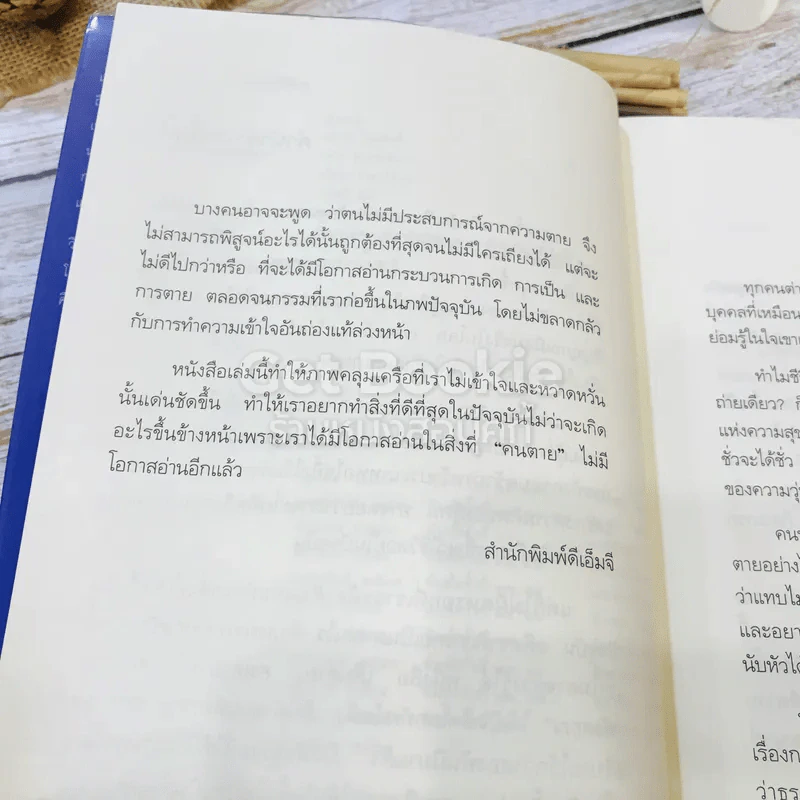 บางคนอาจจะพูด ว่าตนไม่มีประสบการณ์จากความตาย จึง
ไม่สามารถพิสูจน์อะไรได้นั้นถูกต้องที่สุดจนไม่มีใครเถียงได้ แต่จะ
ไม่ดีไปกว่าหรือ ที่จะได้มีโอกาสอ่านกระบวนการเกิด การเป็น และ
การตาย ตลอดจนกรรมที่เราก่อขึ้นในภพปัจจุบัน โดยไม่ขลาดกลัว
กับการทำความเข้าใจอันถ่องแท้ล่วงหน้า
หนังสือเล่มนี้ทำให้ภาพคลุมเครือที่เราไม่เข้าใจและหวาดหวั่น
นั้นเด่นชัดขึ้น ทำให้เราอยากทำสิ่งที่ดีที่สุดในปัจจุบันไม่ว่าจะเกิด
อะไรขึ้นข้างหน้าเพราะเราได้มีโอกาสอ่านในสิ่งที่ “คนตาย” ไม่มี
โอกาสอ่านอีกแล้ว
สำนักพิมพ์ดีเอ็มจี
Get Bookie
ทุกคนต่า
บุคคลที่เหมือน
ย่อมรู้ในใจเขาเ
ทำไมชี
ถ่ายเดียว?
แห่งความสุข
ชั่วจะได้ชั่ว
ของความวุ่น
ตายอย่างไ
ว่าแทบไม่
และอยา
นับหัวได้
เรื่องก
ว่าธร